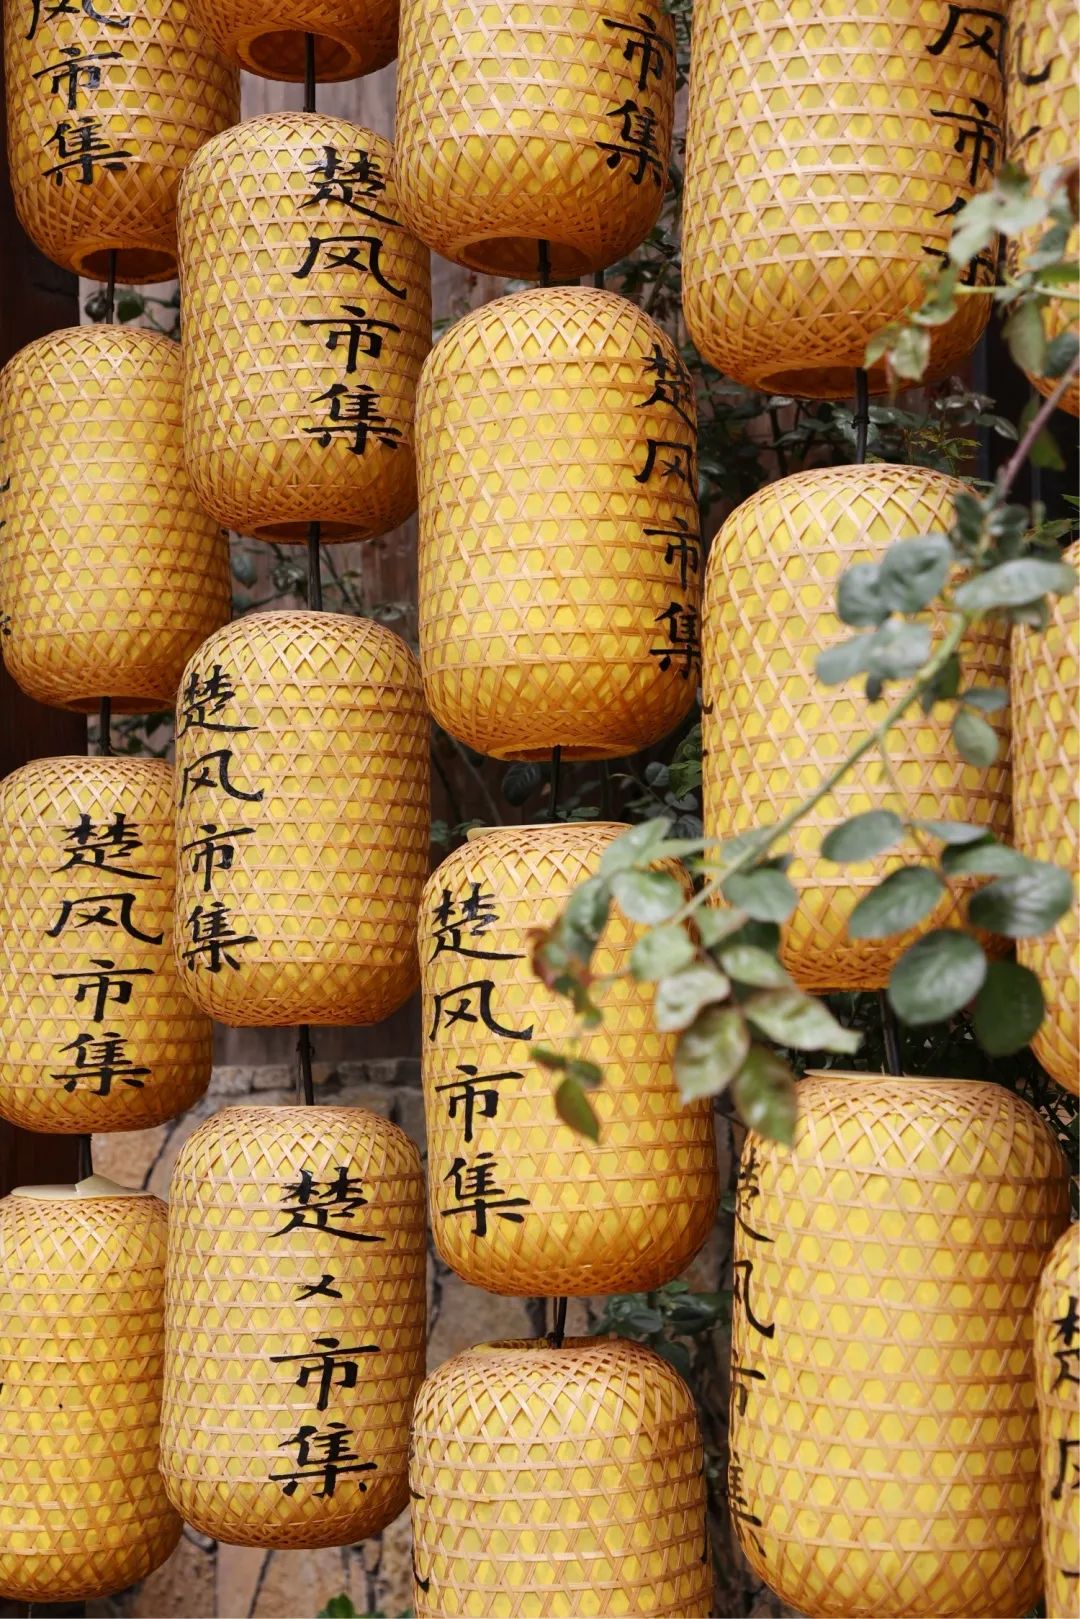 市集
楚风市集
市集
风市集
楚风市集
楚风市集
楚风市集
楚风市集
楚㐅市集
楚风市集